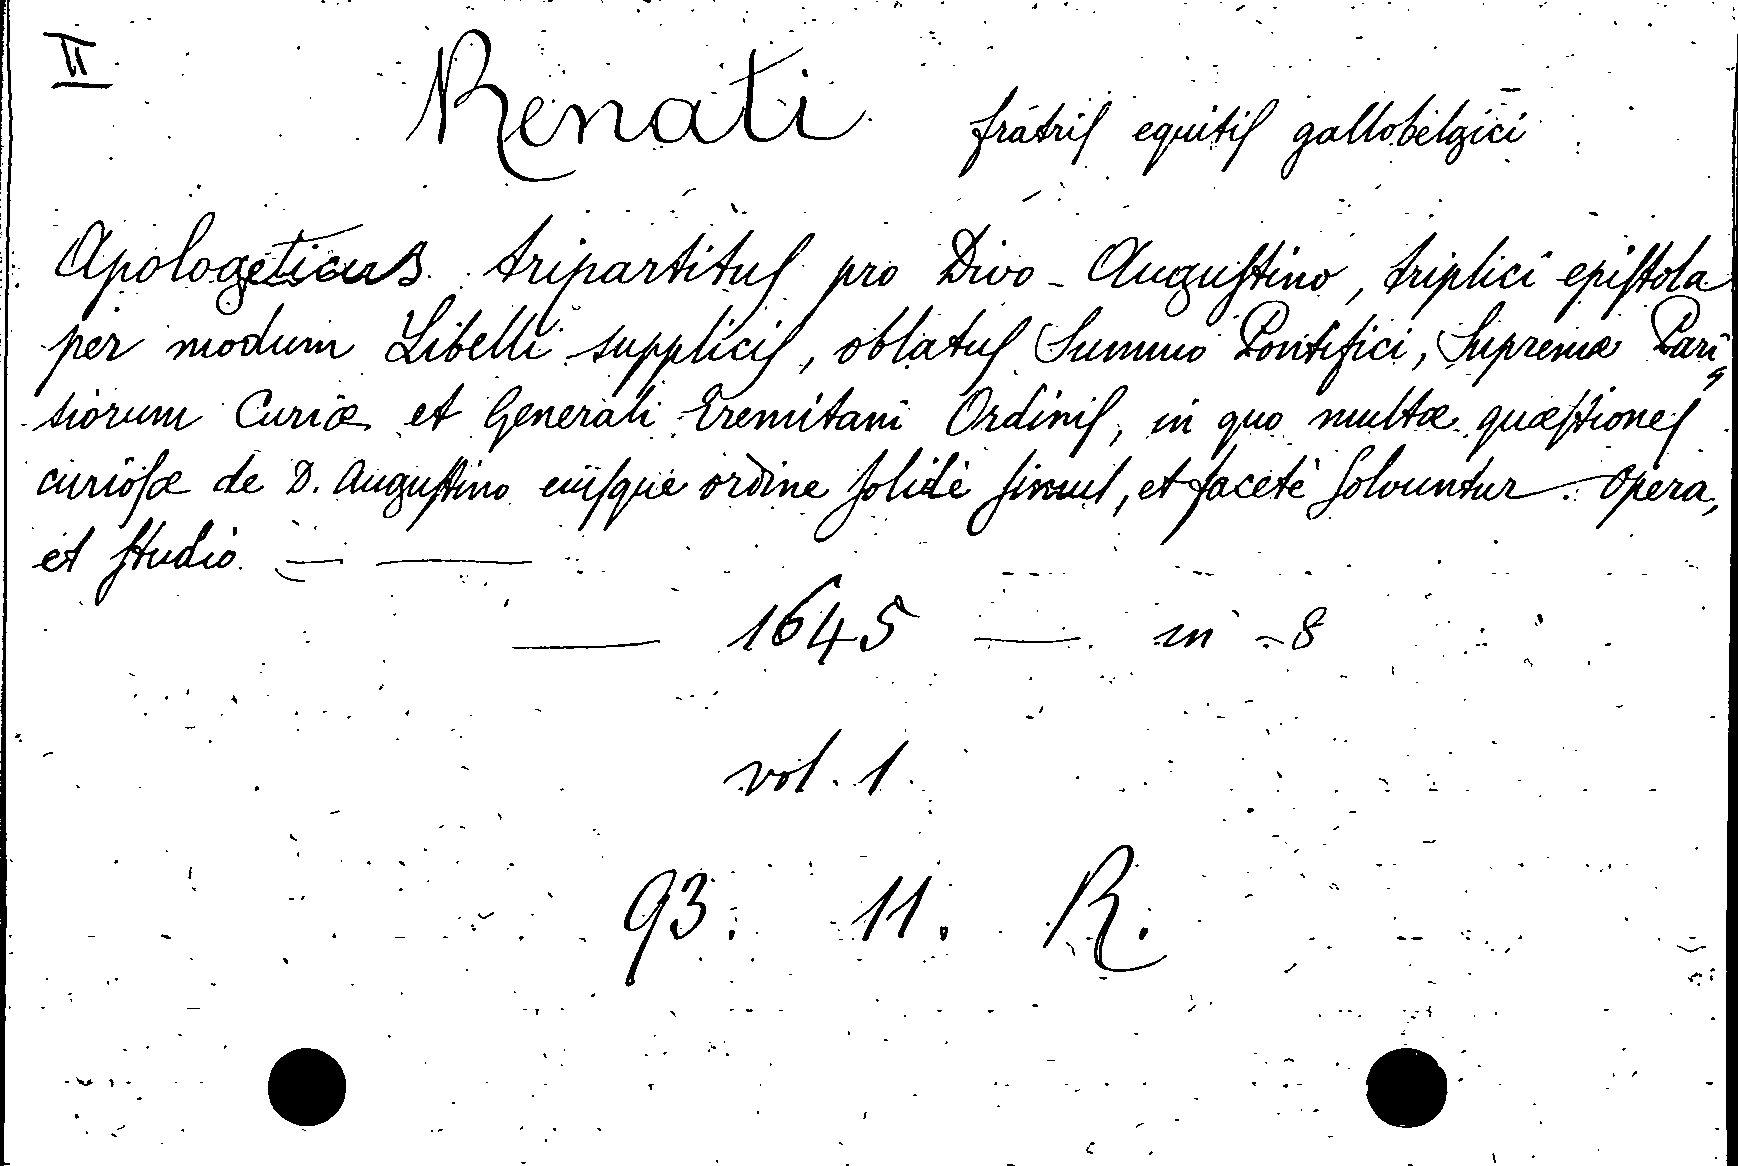 II
Renati fratris equitis gallobelgici
Apologeticus tripartitus pro Divo Augustino, triplici epistola
per modum Libelli supplicis, oblatus Summo Pontifici, Supremæ Pari
siorum Curiæ et Generali Eremitani Ordinis, in quo multæ quæstiones
curiosæ de D. Augustino eiusque ordine solidè simul, et facetè solvuntur. Opera,
et studio. — —
— 1645 — in-8
vol. 1
93. 11. R.